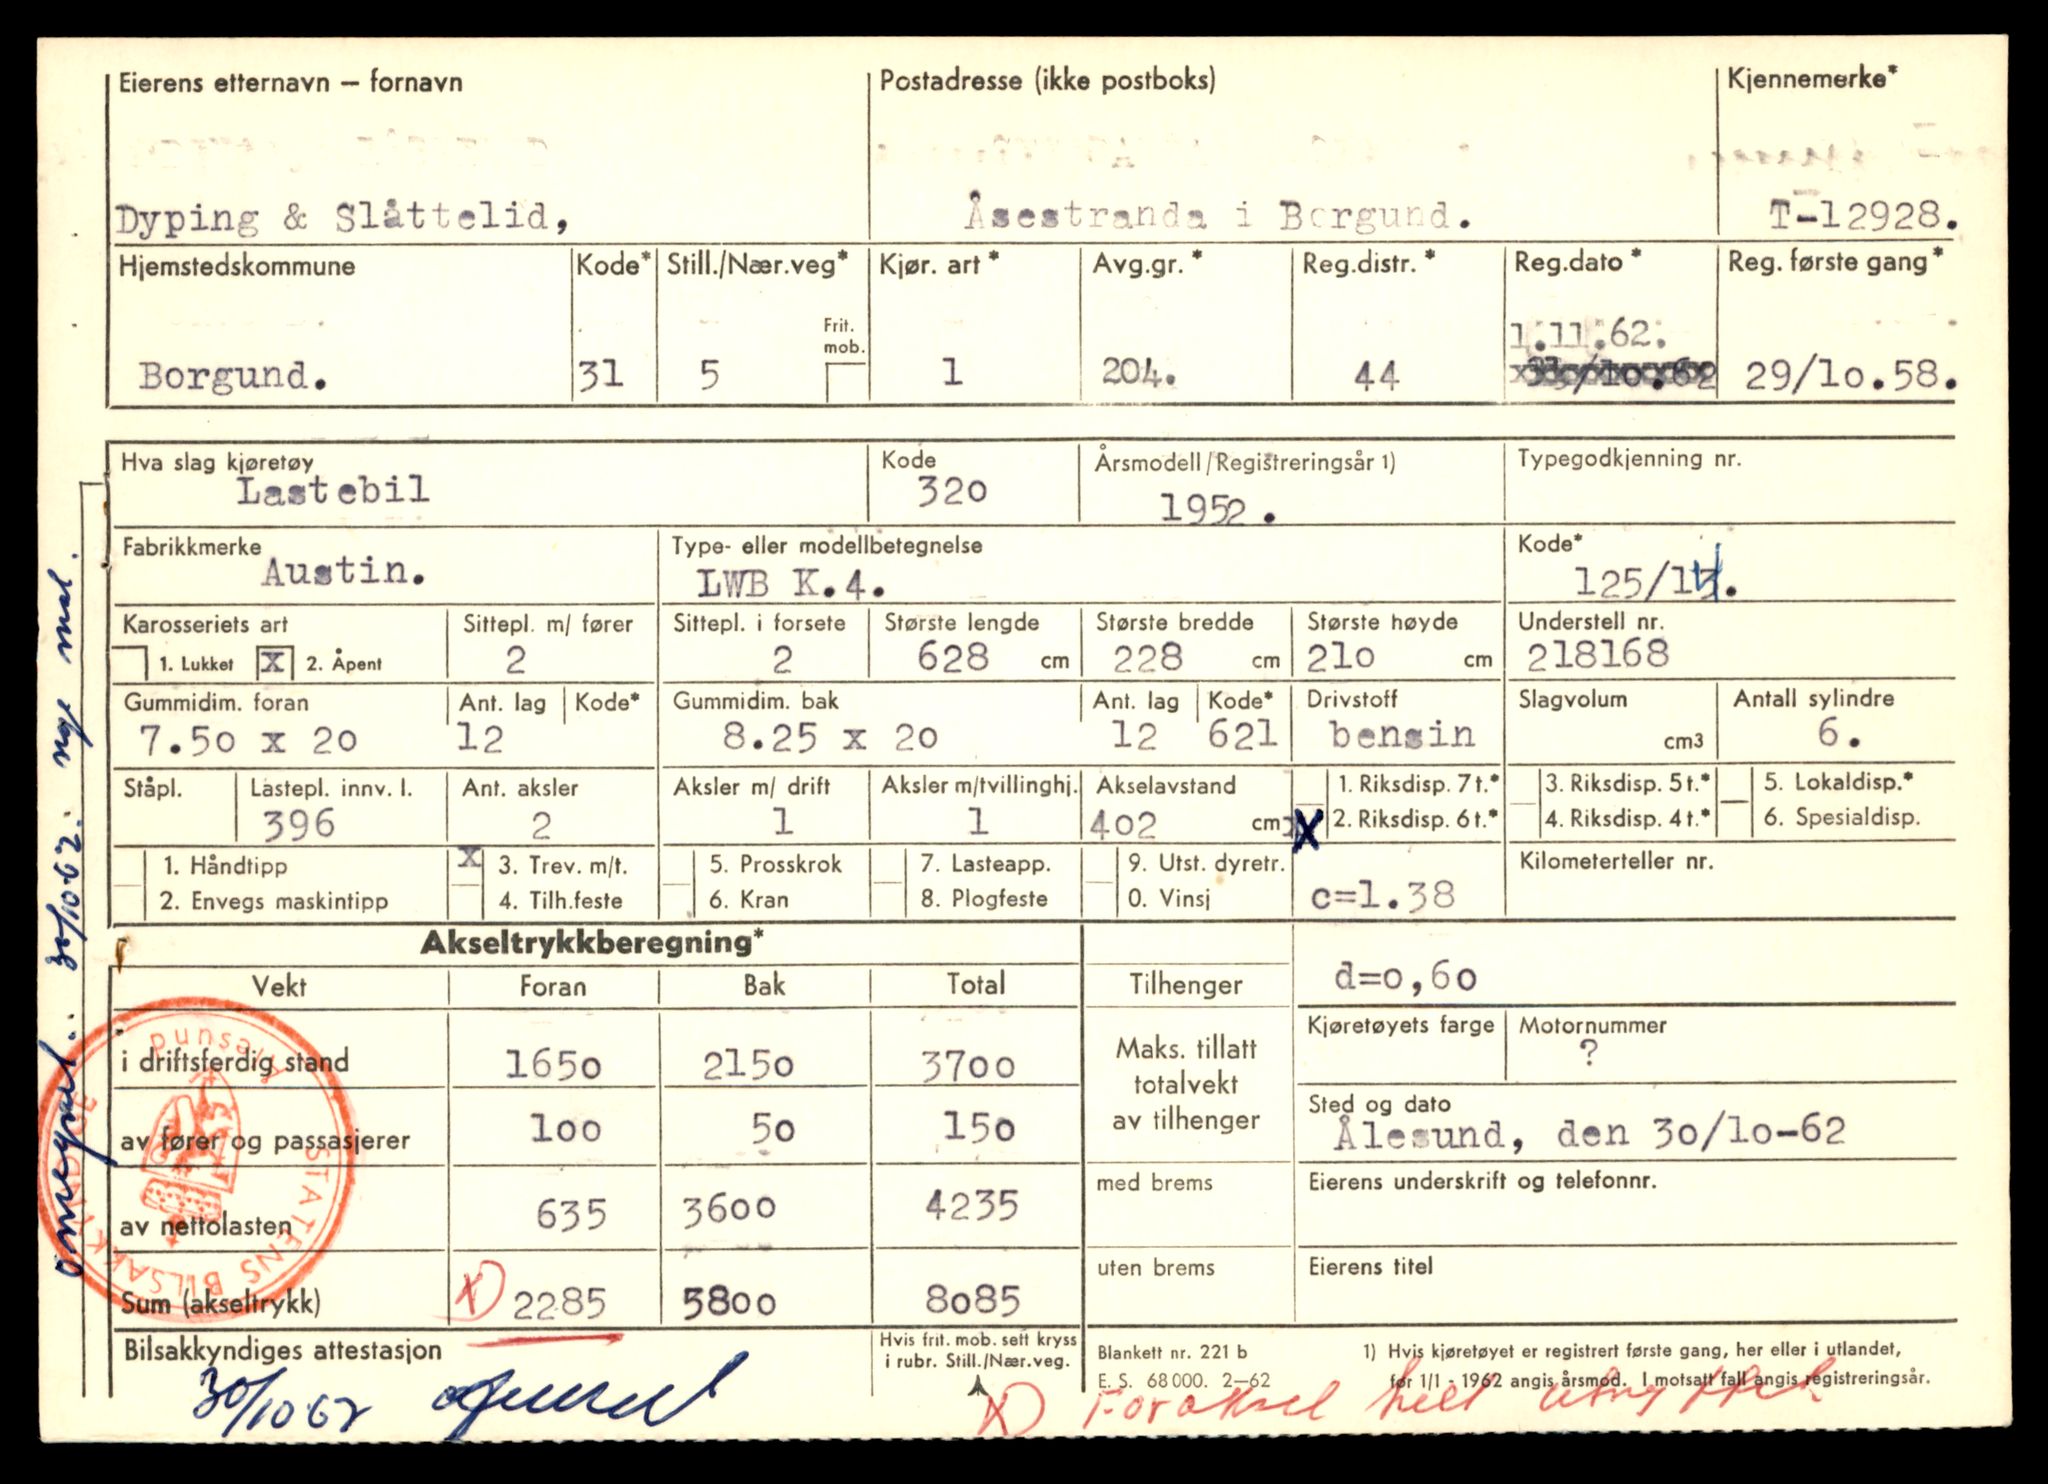 Eierens etternavn – fornavn Postadresse (ikke postboks) Kjennemerke*
Dyping & Slåttelid, Åsestranda i Borgund. T-12928.
Hjemstedskommune Kode* Still./Nær.veg* Kjør. art* Avg.gr.* Reg.distr.* Reg.dato* Reg. første gang*
Frit. mob. 1.11.62.
Borgund. 31 5 1 204. 44 29/1o.58.
Hva slag kjøretøy Kode Årsmodell/Registreringsår 1) Typegodkjenning nr.
Lastebil 32o 1952.
Fabrikkmerke Type- eller modellbetegnelse Kode*
Austin. LWB K.4. 125/14.
Karosseriets art Sittepl. m/ fører Sittepl. i forsete Største lengde Største bredde Største høyde Understell nr.
1. Lukket X 2. Åpent 2 2 628 cm 228 cm 21o cm 218168
Gummidim. foran Ant. lag Kode* Gummidim. bak Ant. lag Kode* Drivstoff Slagvolum Antall sylindre
7.5o x 2o 12 8.25 x 2o 12 621 bensin cm3 6.
Ståpl. Lastepl. innv. l. Ant. aksler Aksler m/ drift Aksler m/tvillinghj. Akselavstand 1. Riksdisp. 7 t.* 3. Riksdisp. 5 t.* 5. Lokaldisp.*
396 2 1 1 4o2 cm X 2. Riksdisp. 6 t.* 4. Riksdisp. 4 t.* 6. Spesialdisp.
1. Håndtipp X 3. Trev. m/t. 5. Prosskrok 7. Lasteapp. 9. Utst. dyretr. Kilometerteller nr.
2. Envegs maskintipp 4. Tilh.feste 6. Kran 8. Plogfeste 0. Vinsj c=1.38
Akseltrykkberegning*
Vekt Foran Bak Total Tilhenger d=o,6o
Kjøretøyets farge Motornummer
i driftsferdig stand 165o 215o 37oo Maks. tillatt totalvekt av tilhenger ?
Sted og dato
av fører og passasjerer 1oo 5o 15o Ålesund, den 3o/1o-62
med brems Eierens underskrift og telefonnr.
av nettolasten 635 36oo 4235
uten brems Eierens titel
Sum (akseltrykk) X) 2285 58oo 8o85
Bilsakkyndiges attestasjon Hvis frit. mob. sett kryss i rubr. Still./Nær.veg.
Blankett nr. 221 b
E. S. 68 000. 2–62
1) Hvis kjøretøyet er registrert første gang, her eller i utlandet,
før 1/1 - 1962 angis årsmod. I motsatt fall angis registreringsår.
30/10 62
X) Foraksel helt
30/10-62. nye mal.
STATENS BILSAKKYNDIGE
Ålesund